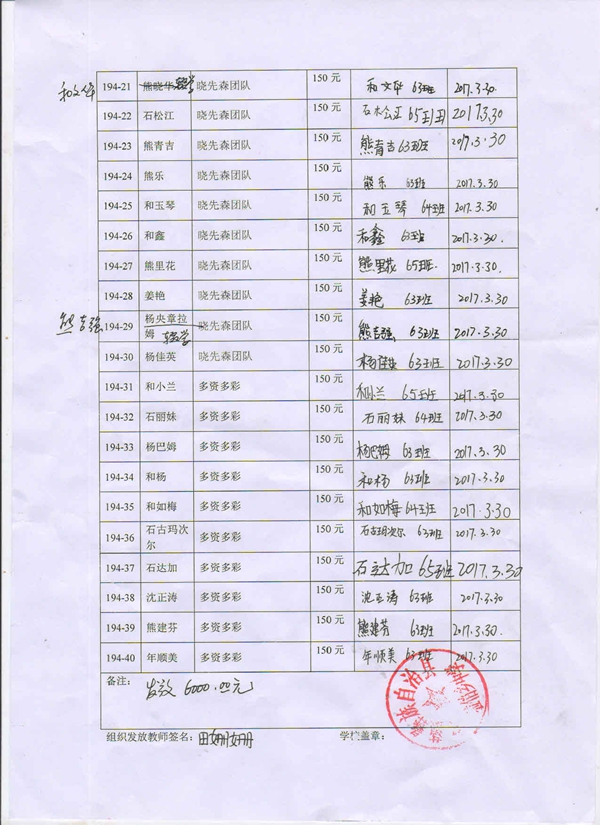 和文华 194-21 熊晓华 转学 晓先森团队 150 元 和文华 63班 2017.3.30
194-22 石松江 晓先森团队 150 元 石松江 65班 2017.3.30
194-23 熊青吉 晓先森团队 150 元 熊青吉 63班 2017.3.30
194-24 熊乐 晓先森团队 150 元 熊乐 63班 2017.3.30
194-25 和玉琴 晓先森团队 150 元 和玉琴 64班 2017.3.30
194-26 和鑫 晓先森团队 150 元 和鑫 63班 2017.3.30
194-27 熊里花 晓先森团队 150 元 熊里花 65班 2017.3.30
194-28 姜艳 晓先森团队 150 元 姜艳 63班 2017.3.30
熊吉强 194-29 杨央章拉 晓先森团队 150 元 熊吉强 63班 2017.3.30
姆 转学
194-30 杨佳英 晓先森团队 150 元 杨佳英 63班 2017.3.30
194-31 和小兰 多资多彩 150 元 和小兰 65班 2017.3.30
194-32 石丽妹 多资多彩 150 元 石丽妹 64班 2017.3.30
194-33 杨巴姆 多资多彩 150 元 杨巴姆 63班 2017.3.30
194-34 和杨 多资多彩 150 元 和杨 63班 2017.3.30
194-35 和如梅 多资多彩 150 元 和如梅 64班 2017.3.30
194-36 石古玛次 多资多彩 150 元 石古玛次尔 63班 2017.3.30
尔
194-37 石达加 多资多彩 150 元 石达加 65班 2017.3.30
194-38 沈正涛 多资多彩 150 元 沈正涛 63班 2017.3.30
194-39 熊建芬 多资多彩 150 元 熊建芬 63班 2017.3.30
194-40 年顺美 多资多彩 150 元 年顺美 63班 2017.3.30
备注：
发放 6000.00元
族自治县
组织发放教师签名： 田姗姗 学校盖章：